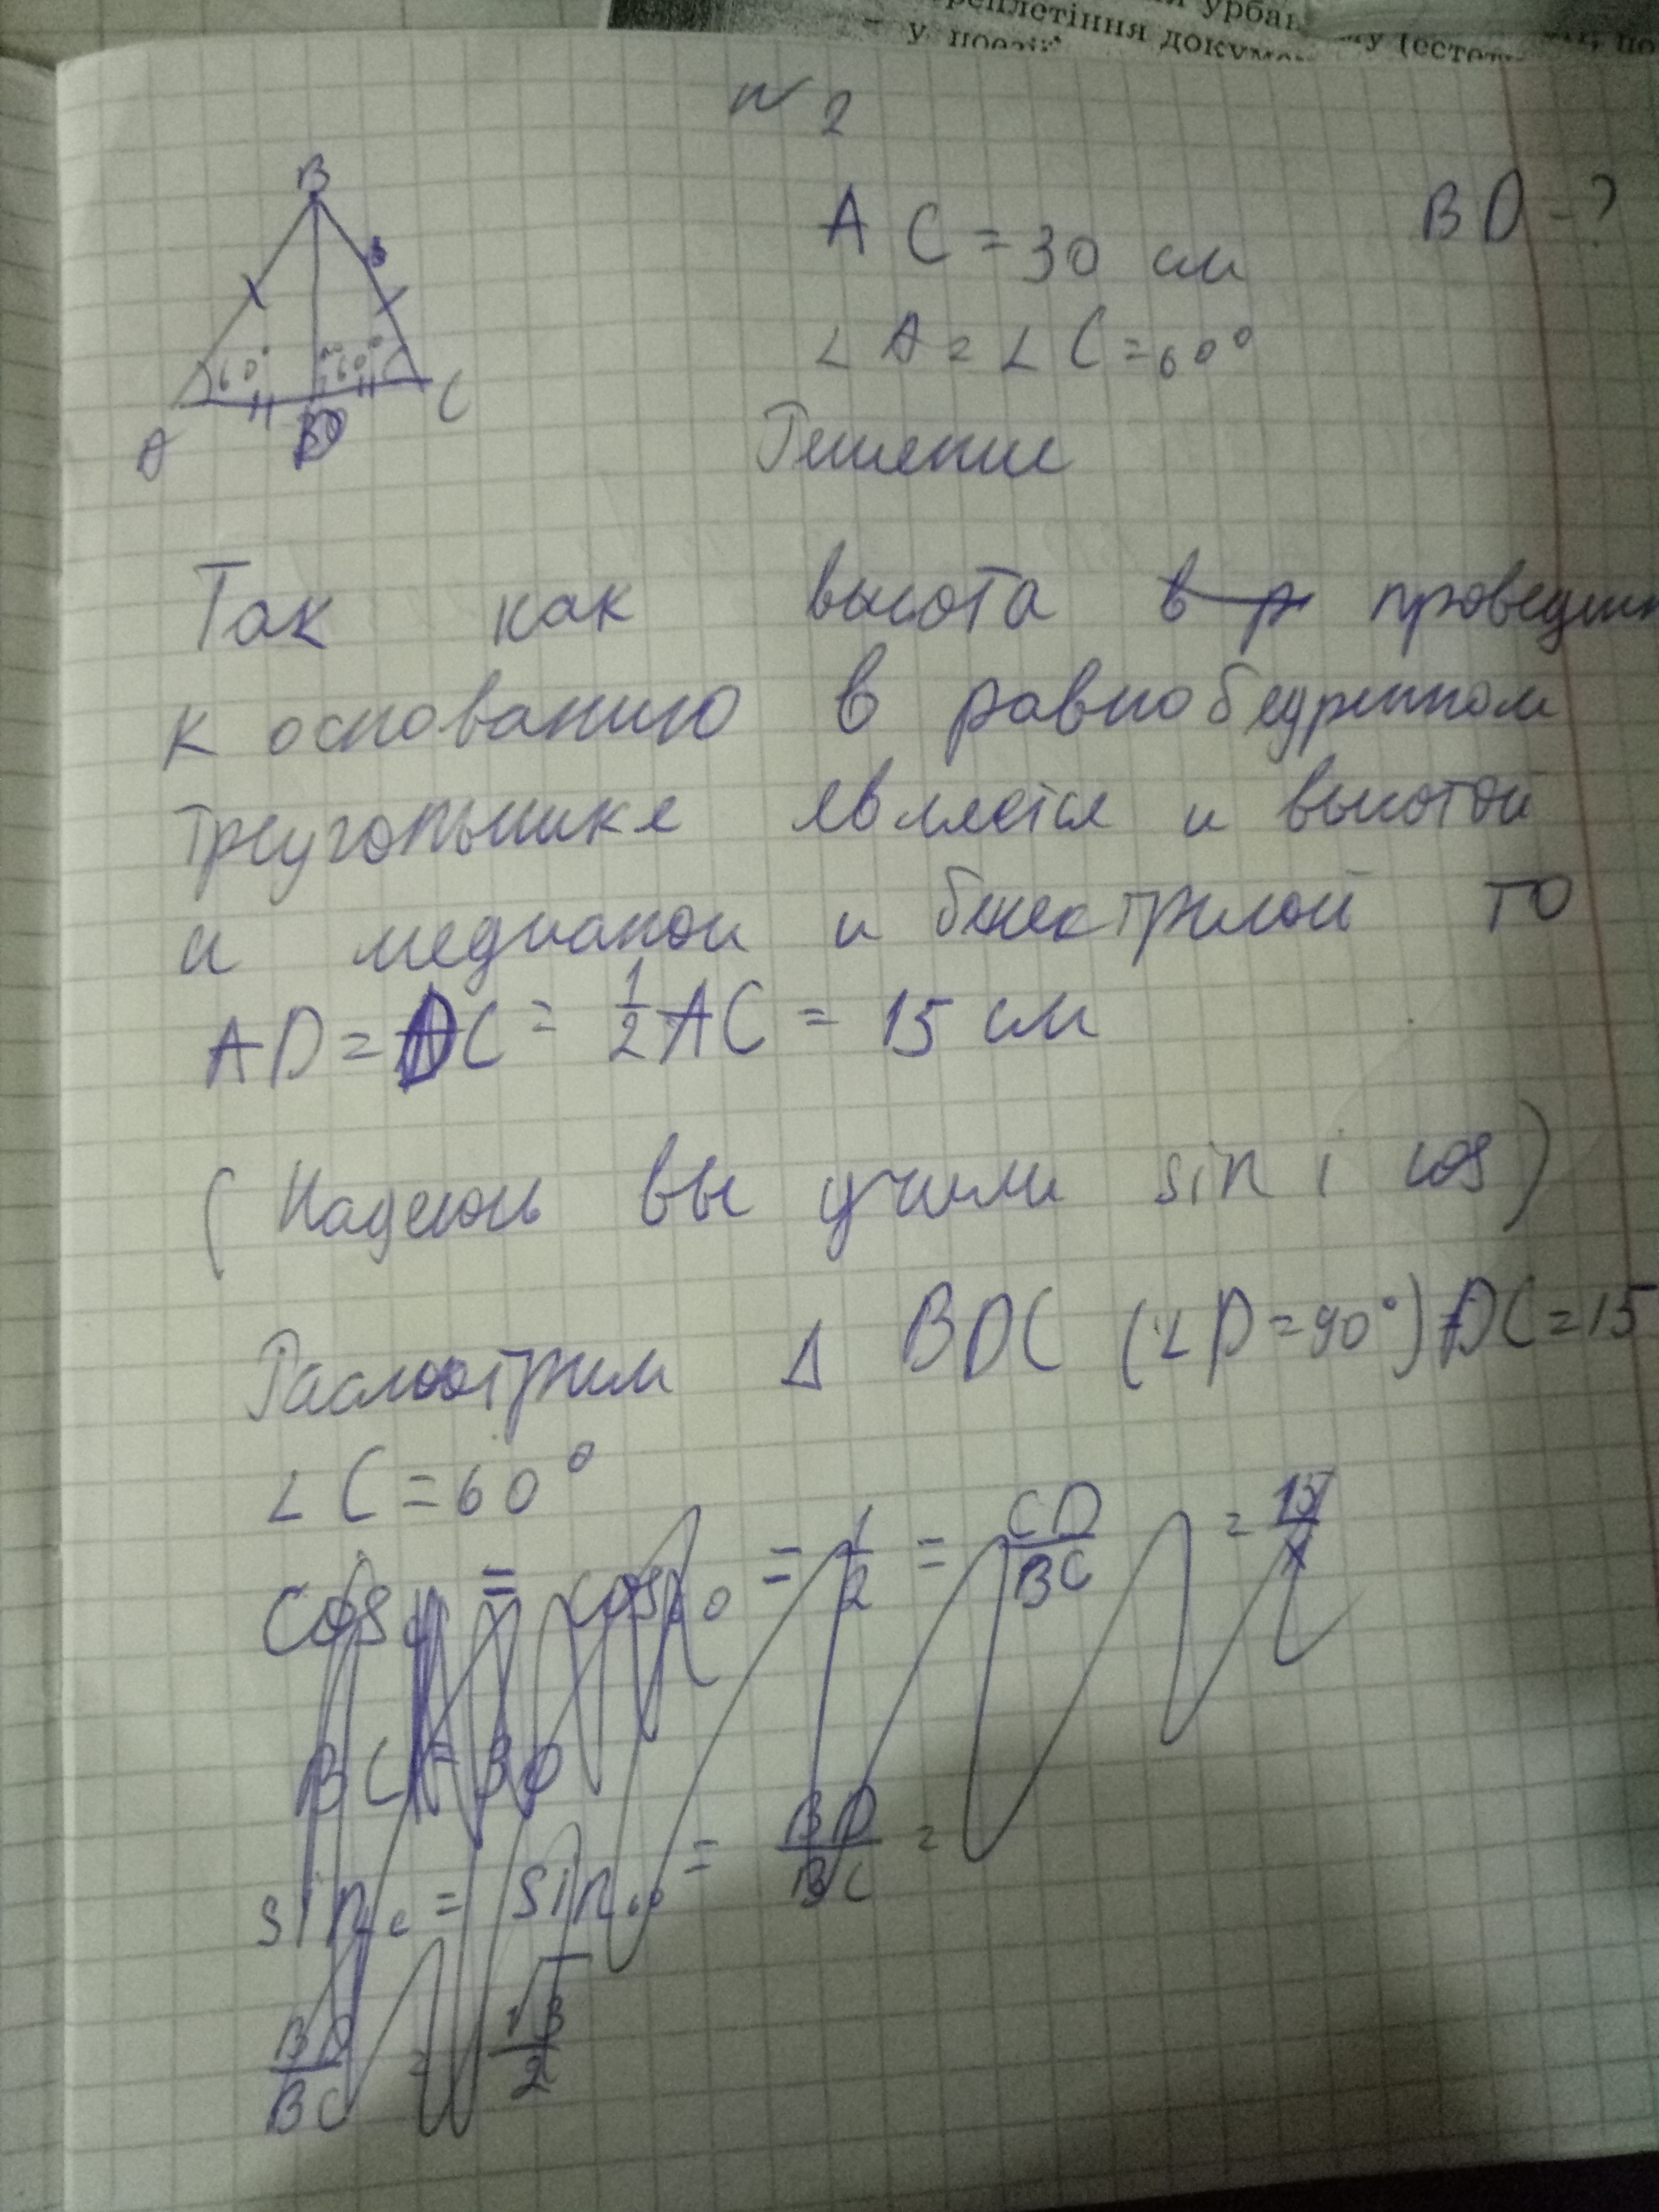 у поезії
№ 2
B
60°
60°
A
D
C
AC = 30 см
BD - ?
∠A = ∠C = 60°
Решение
Так как высота в р проведен
к основанию в равнобедренном
треугольнике является и высотой
и медианой и биссектрисой то
AD = DC = 1/2 AC = 15 см
(Надеюсь вы учили sin i cos)
Рассмотрим Δ BDC (∠D = 90°) DC = 15
∠C = 60°
= cos 60 = 1/2 = CD/BC = 15/x
BC = 30
sin c = sin 60 = BD/BC =
BD/BC = √3/2